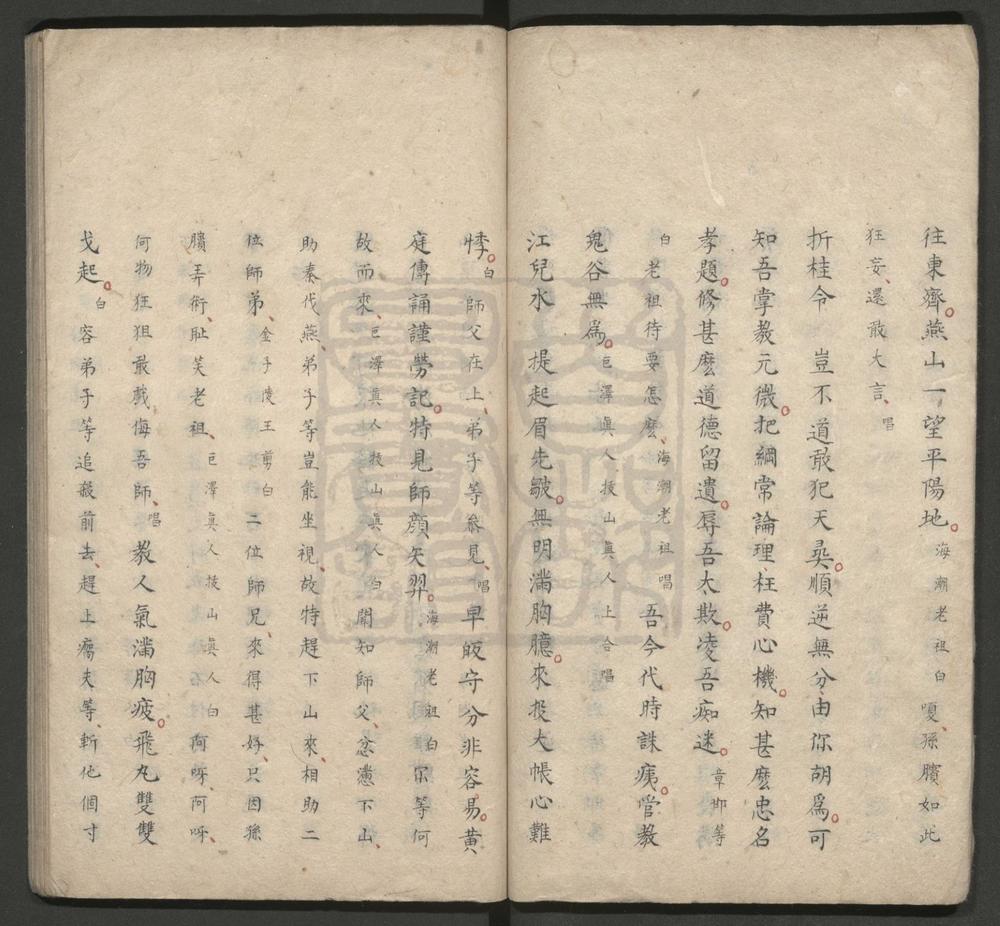 往東齊。燕山一望平陽地。海潮老祖白嗄、孫臏如此
狂妄、還敢大言、唱
折桂令　豈不道敢犯天彞。順逆無分、由你胡爲。可
知吾掌教元微。把綱常論理、枉費心機。知甚麽忠名
孝題。修甚麽道德留遺。辱吾太欺。凌吾痴迷。章邯等
白老祖待要怎麽、海潮老祖唱吾今代時誅痍。管教
鬼谷無爲。巨澤眞人披山眞人上合唱
江兒水　提起眉先皺。無明滿胸臆。來投大帳心難
悸。白師父在上、弟子等叅見、唱早皈守分非容易。黄
庭傳誦謹勞記。特見師顔矢羿。海潮老祖白尔等何
故而來、巨澤眞人披山眞人白聞知師父、忿懣下山、
助秦伐燕、弟子等豈能坐視、故特趕下山來、相助二
位師弟、金子陵王剪白二位師兄、來得甚好、只因孫
臏弄術、耻笑老祖、巨澤眞人披山眞人白阿呀、阿呀、
何物狂狙敢戲侮吾師、唱教人氣滿胸疲。飛丸雙雙
戈起。白容弟子等追殺前去、趕上癘夫等、斬他個寸